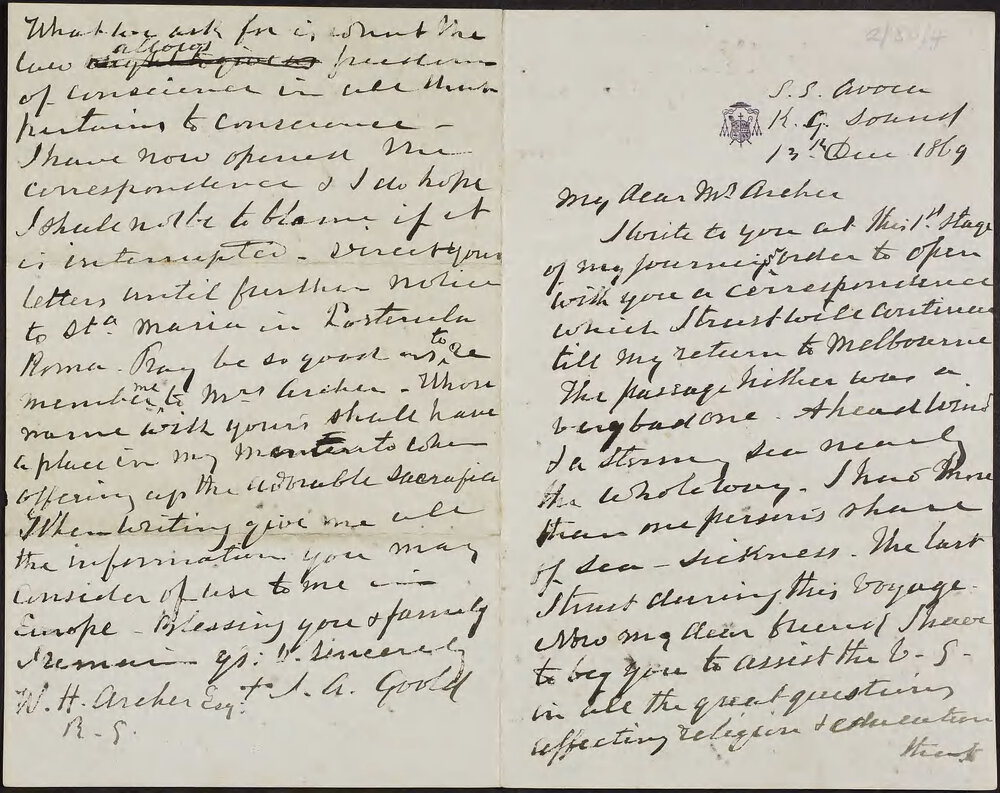 2/80/4
S. S. Avoca
K. G. Sound
13th Dec 1869
My dear Mr Archer
I write to you at this 1st stage
of my journey in order to open
with you a correspondence
which I trust will continue
till my return to Melbourne
The passage hither was a
very bad one. A head wind
& a stormy sea nearly
the whole way. I had more
than one person's share
of sea-sickness. The last
I trust during this voyage.
Now my dear friend I have
to beg you to assist the V. G.
in all the great questions
affecting religion & education
What we ask for is what the
law allows freedom
of conscience in all that
pertains to conscience -
I have now opened the
correspondence & I do hope
I shall not be to blame if it
is interrupted - Direct your
letters until further notice
to Sta. Maria in Posterula
Roma. Pray be so good as to re
member me to Mrs Archer - Whose
name with yours shall have
a place in my Memento when
offering up the adorable sacrifice
When writing give me all
the information you may
consider of use to me in
Europe - Blessing you & family
I remain yrs. V. sincerely
+ J. A. Goold
W. H. Archer Esq.
R. G.